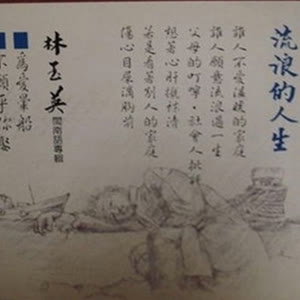 流浪的人生
誰人不愛溫暖的家庭
誰人願意流浪過一生
父母的叮嚀社會人批評
想著心肝撒抹清
若是看著別人的家庭
傷心目屎滿胸前
林玉英
閩南語專輯
為愛暈船
不願乎你娶